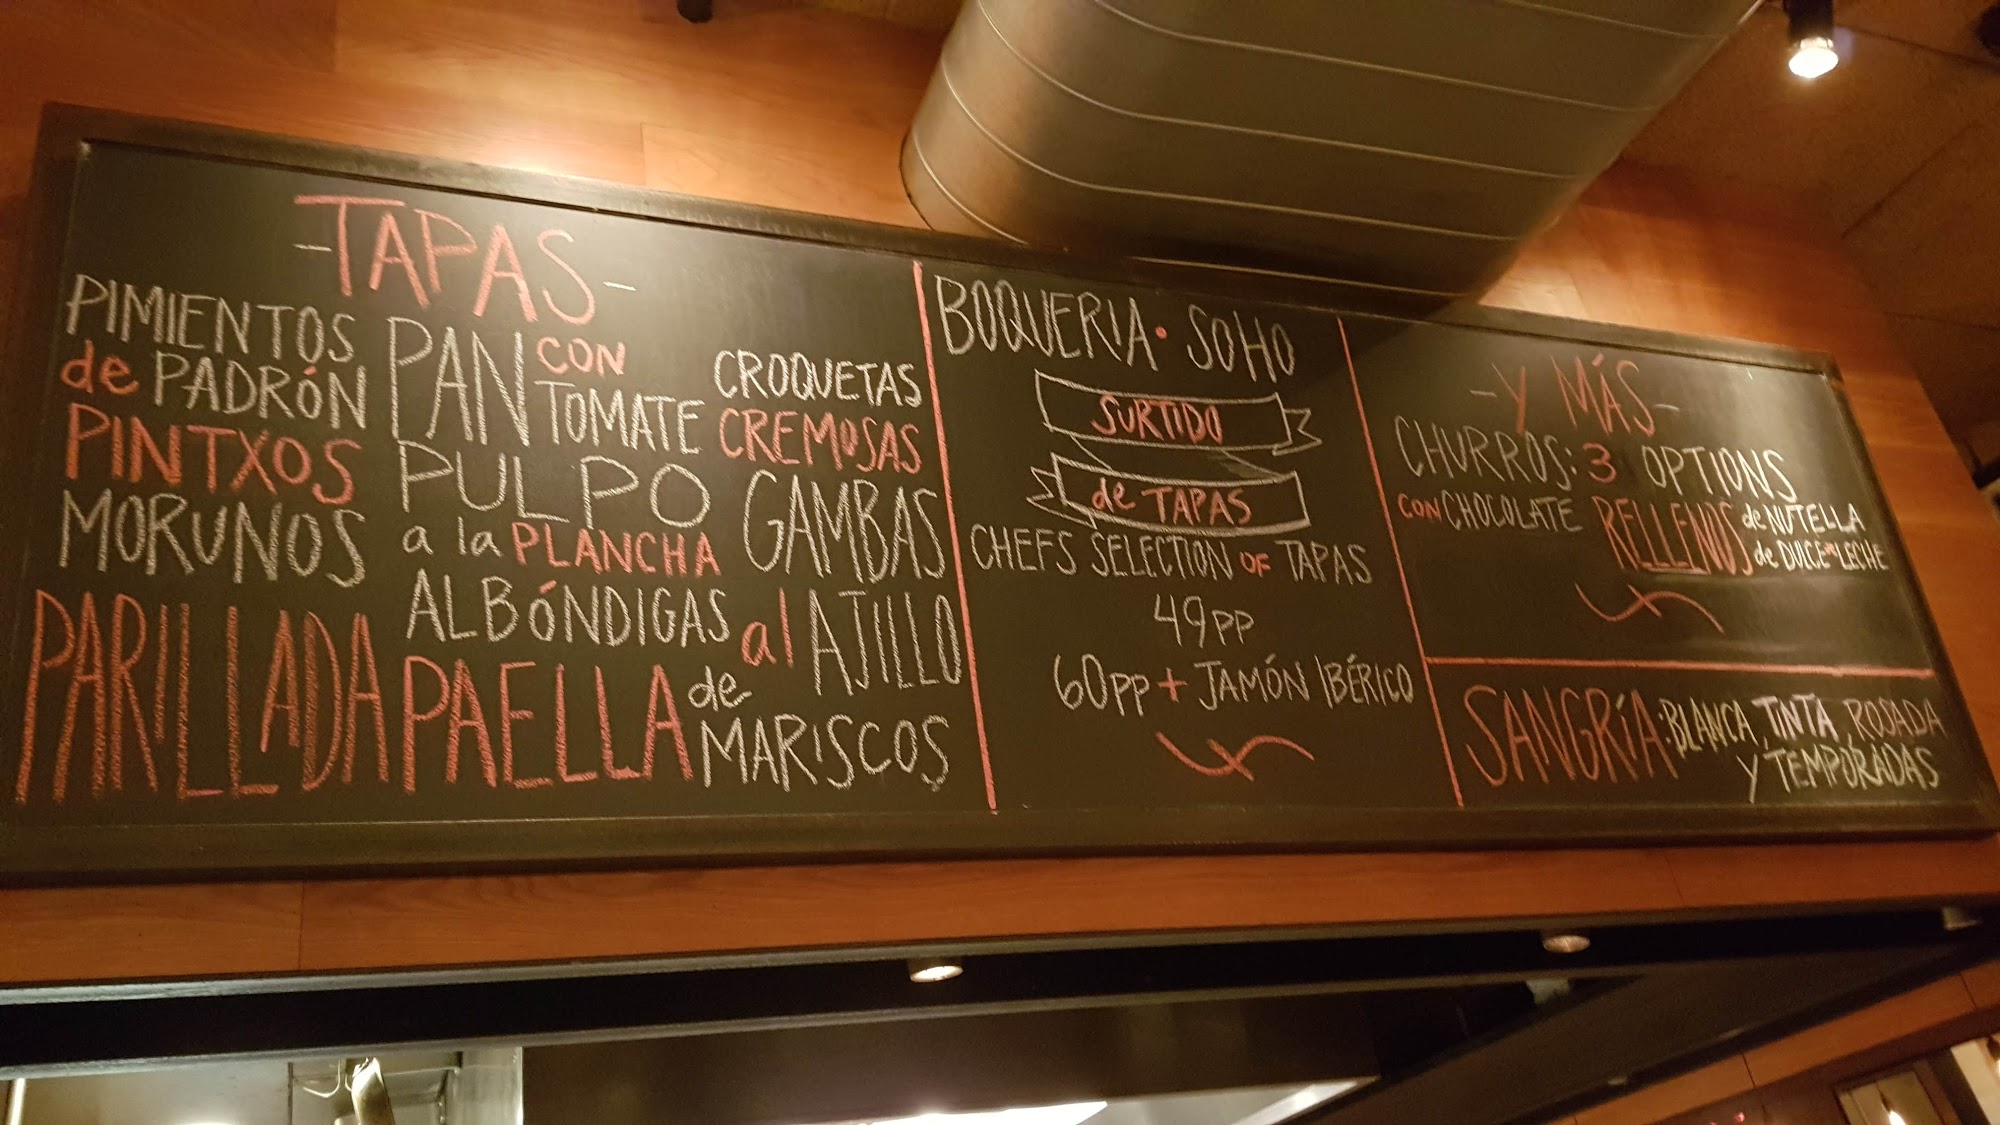 -TAPAS-
PIMIENTOS
de PADRÓN
PINTXOS
MORUNOS
PARILLADA
PAN CON
TOMATE
PULPO
a la PLANCHA
ALBÓNDIGAS
PAELLA de
MARISCOS
CROQUETAS
CREMOSAS
GAMBAS
al AJILLO
BOQUERIA • SOHO
SURTIDO
de TAPAS
CHEFS SELECTION OF TAPAS
49PP
60PP + JAMÓN IBÉRICO
-Y MÁS-
CHURROS: 3 OPTIONS
CON CHOCOLATE RELLENOS de NUTELLA
de DULCE de LECHE
SANGRÍA: BLANCA, TINTA, ROSADA
Y TEMPORADAS